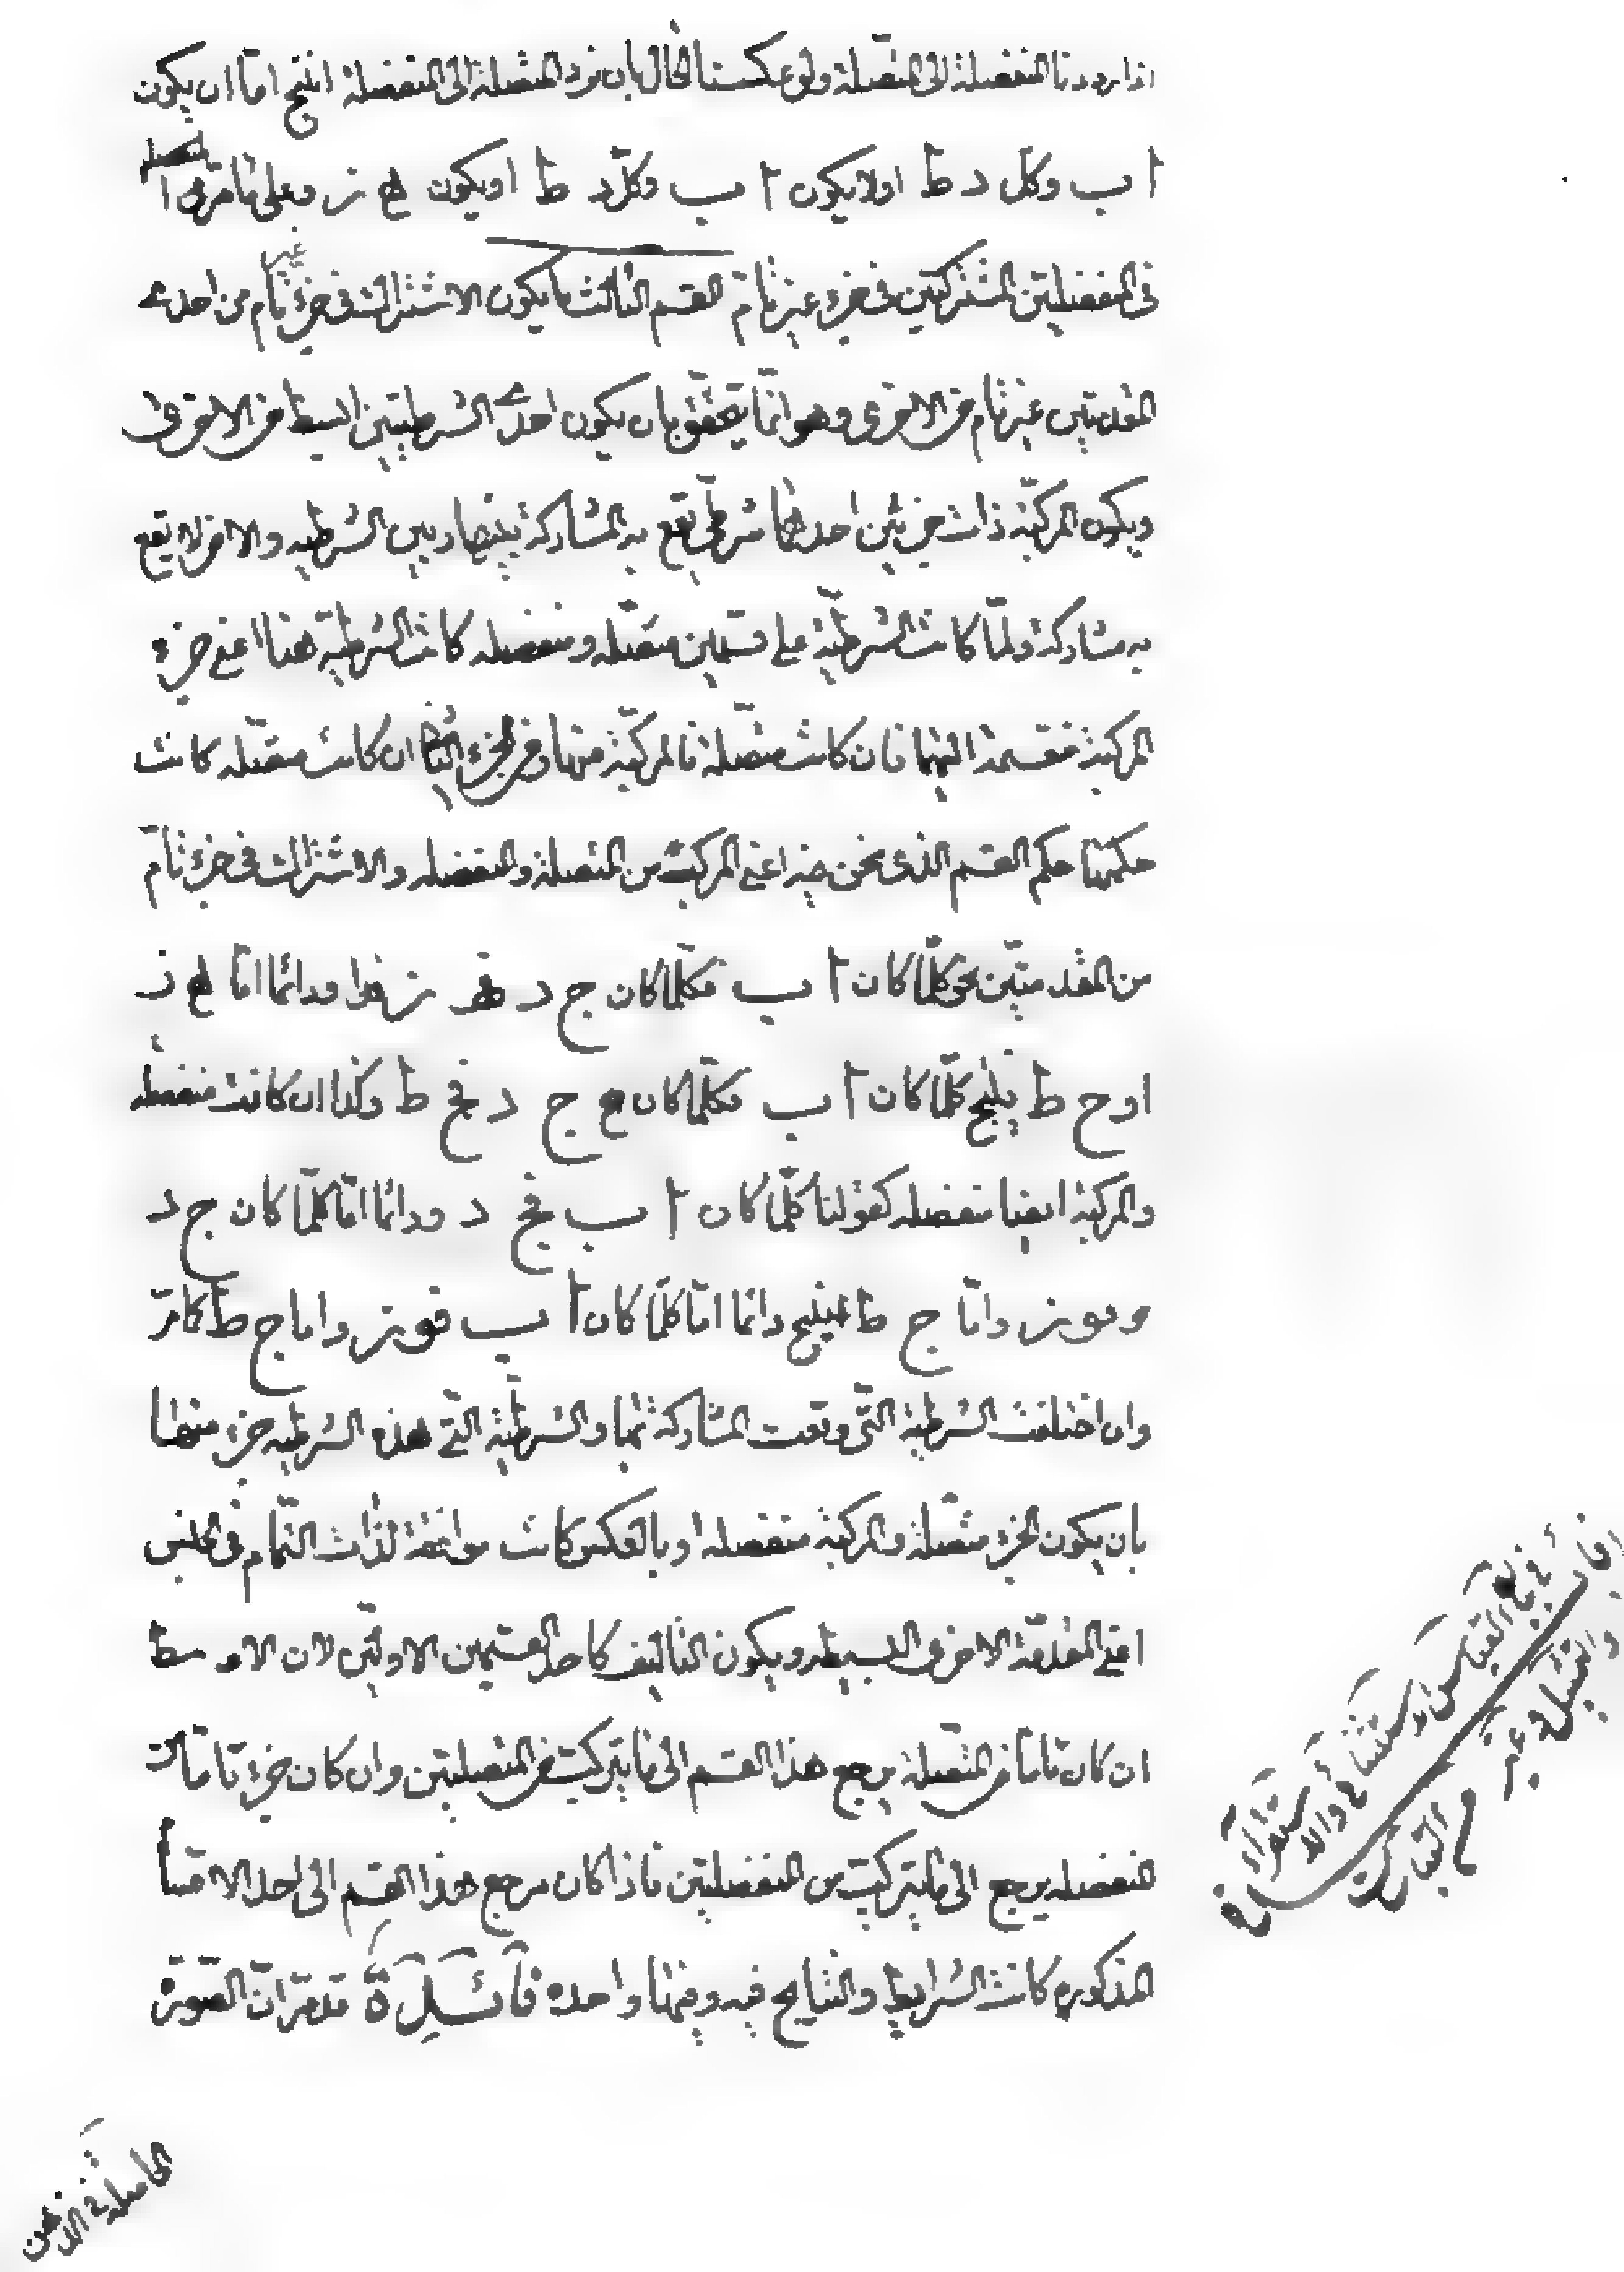 اذا رددنا المنفصلة الى المتصلة ولو عكسنا الحال بان نرد المتصلة الى المنفصلة انتج اما ان يكون
ا ب وكل د ط او لا يكون ا ب وكل د ط او يكون ه ز وعلى ما مر
فى المنفصلتين المشتركتين فى جزء غير تام القسم الثالث ما يكون الاشتراك فى جزء غير تام من احدى
المقدمتين غير تام من الاخرى وهو انما يتحقق بان يكون احدى الشرطيتين ابسط من الاخرى
ويكون المركبة ذات جزئين احدهما شرطى يقع به المشاركة بينها وبين الشرطيه والاخر لا يقع
به مشاركة ولما كانت الشرطية على قسمين متصله ومنفصله كانت الشرطية هنا اعنى جزء
المركبة منقسمة اليهما فان كانت متصلة فالمركبة منها ومن الجزء الثانى ان كانت متصله كانت
حكمها حكم القسم الذى نحن فيه اعنى المركبة من المتصلة والمنفصله والاشتراك فى جزء تام
من المقدمتين نحو كلما كان ا ب فكلما كان ج د فه ز ودائما اما ه ز
او ح ط ينتج كلما كان ا ب فكلما كان ج د فح ط وكذا ان كانت منفصله
والمركبة ايضا منفصله كقولنا كلما كان ا ب فج د ودائما اما كلما كان ج د
فه ز واما ح ط فينتج دائما اما كلما كان ا ب فه ز واما ح ط كما مر
وان اختلفت الشرطية التى وقعت المشاركة بها والشرطية التى هذه الشرطيه جزء منها
بان يكون الجزء متصلة والمركبة منفصله او بالعكس كانت موافقة لذات التمام فى الجنس
اعنى المقدمة الاخرى البسيطه ويكون التاليف كاحد القسمين الاولين لان الاوسط
ان كان تاما من المتصلة يرجع هذا القسم الى ما يتركب من المتصلتين وان كان جزء تاما من
المنفصله يرجع الى ما يتركب من المنفصلتين فاذا كان مرجع هذا القسم الى احد الاقسام
المذكوره كانت الشرايط والنتايج فيه وفيها واحده فائدة قد مر ان الصورة
الحاصلة فى الذهن
القياس الاستثنائى والاستقراء
والتمثيل